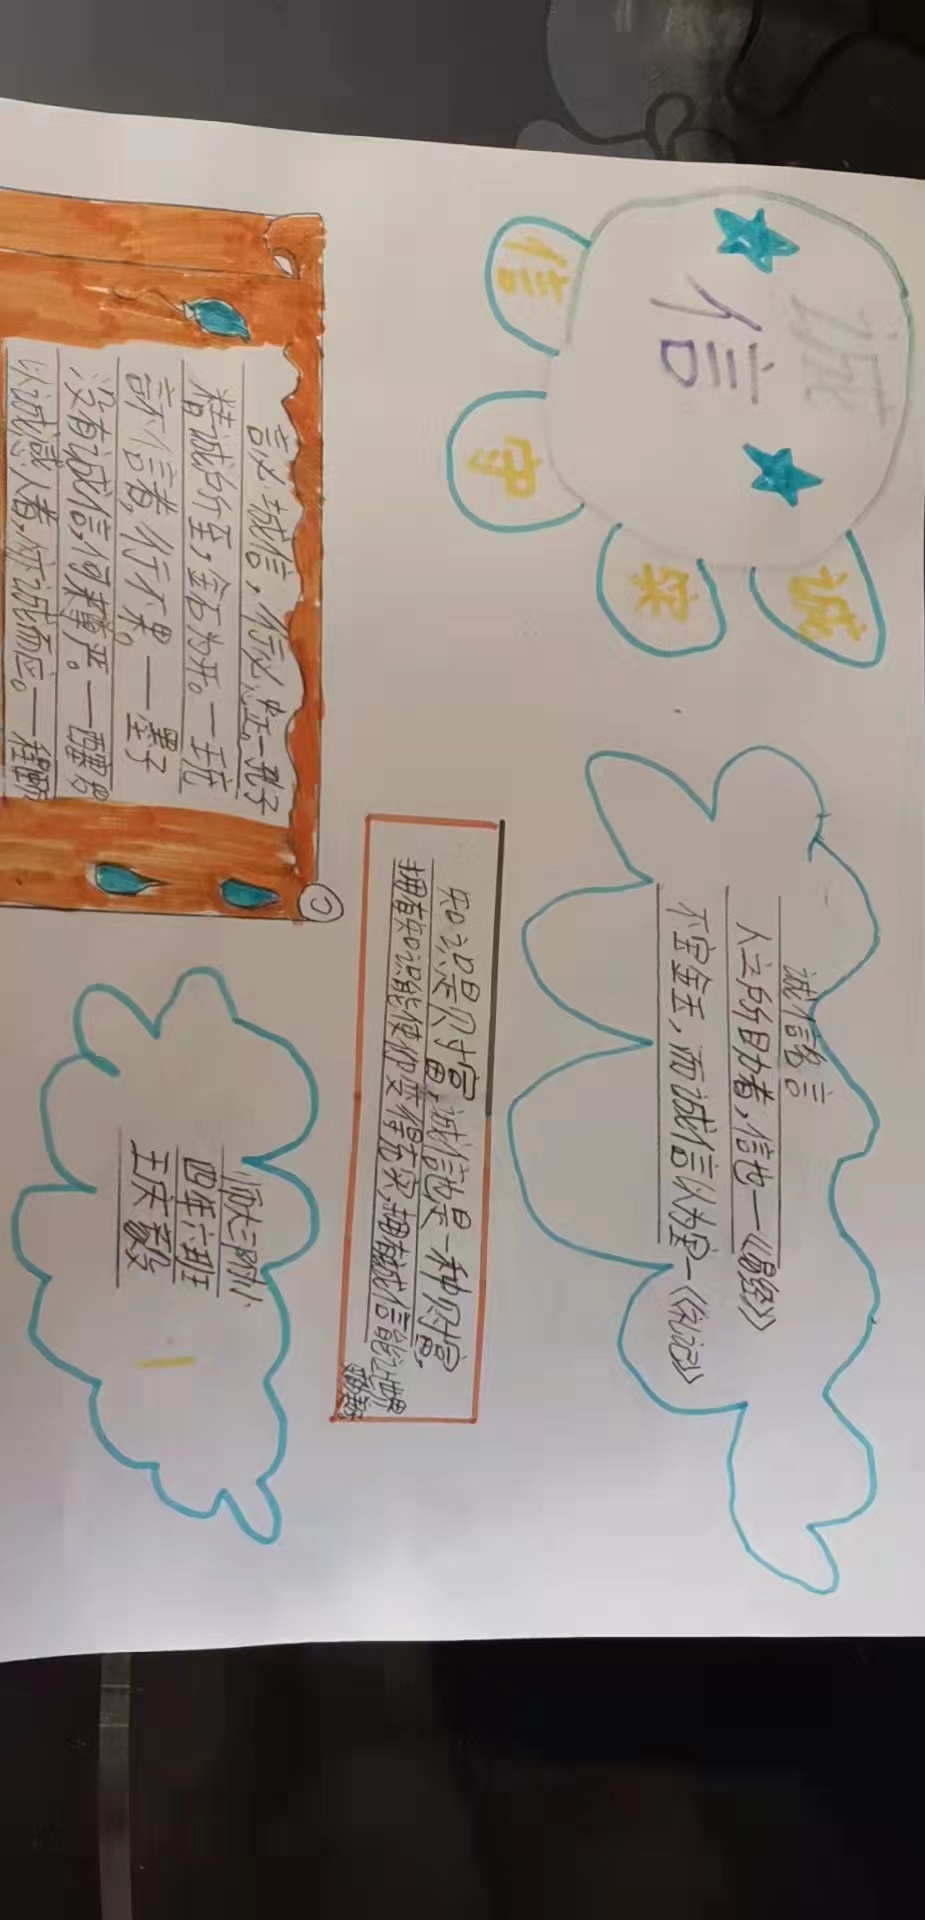 诚
信
诚
实
守
信
诚信名言
人之所助者,信也一《易经》
不宝金玉,而诚信以为宝一《礼记》
知识是财富,诚信也是一种财富。
拥有知识能使你变得充实,拥有诚信能让世界
言必诚信,行必忠正一孔子
精诚所至,金石为开。一王充
言不信者,行不果。一墨子
没有诚信,何来尊严。一西塞罗
以诚感人者,人亦诚而应。一程颐
师大三附小
四年六班
王庆毅